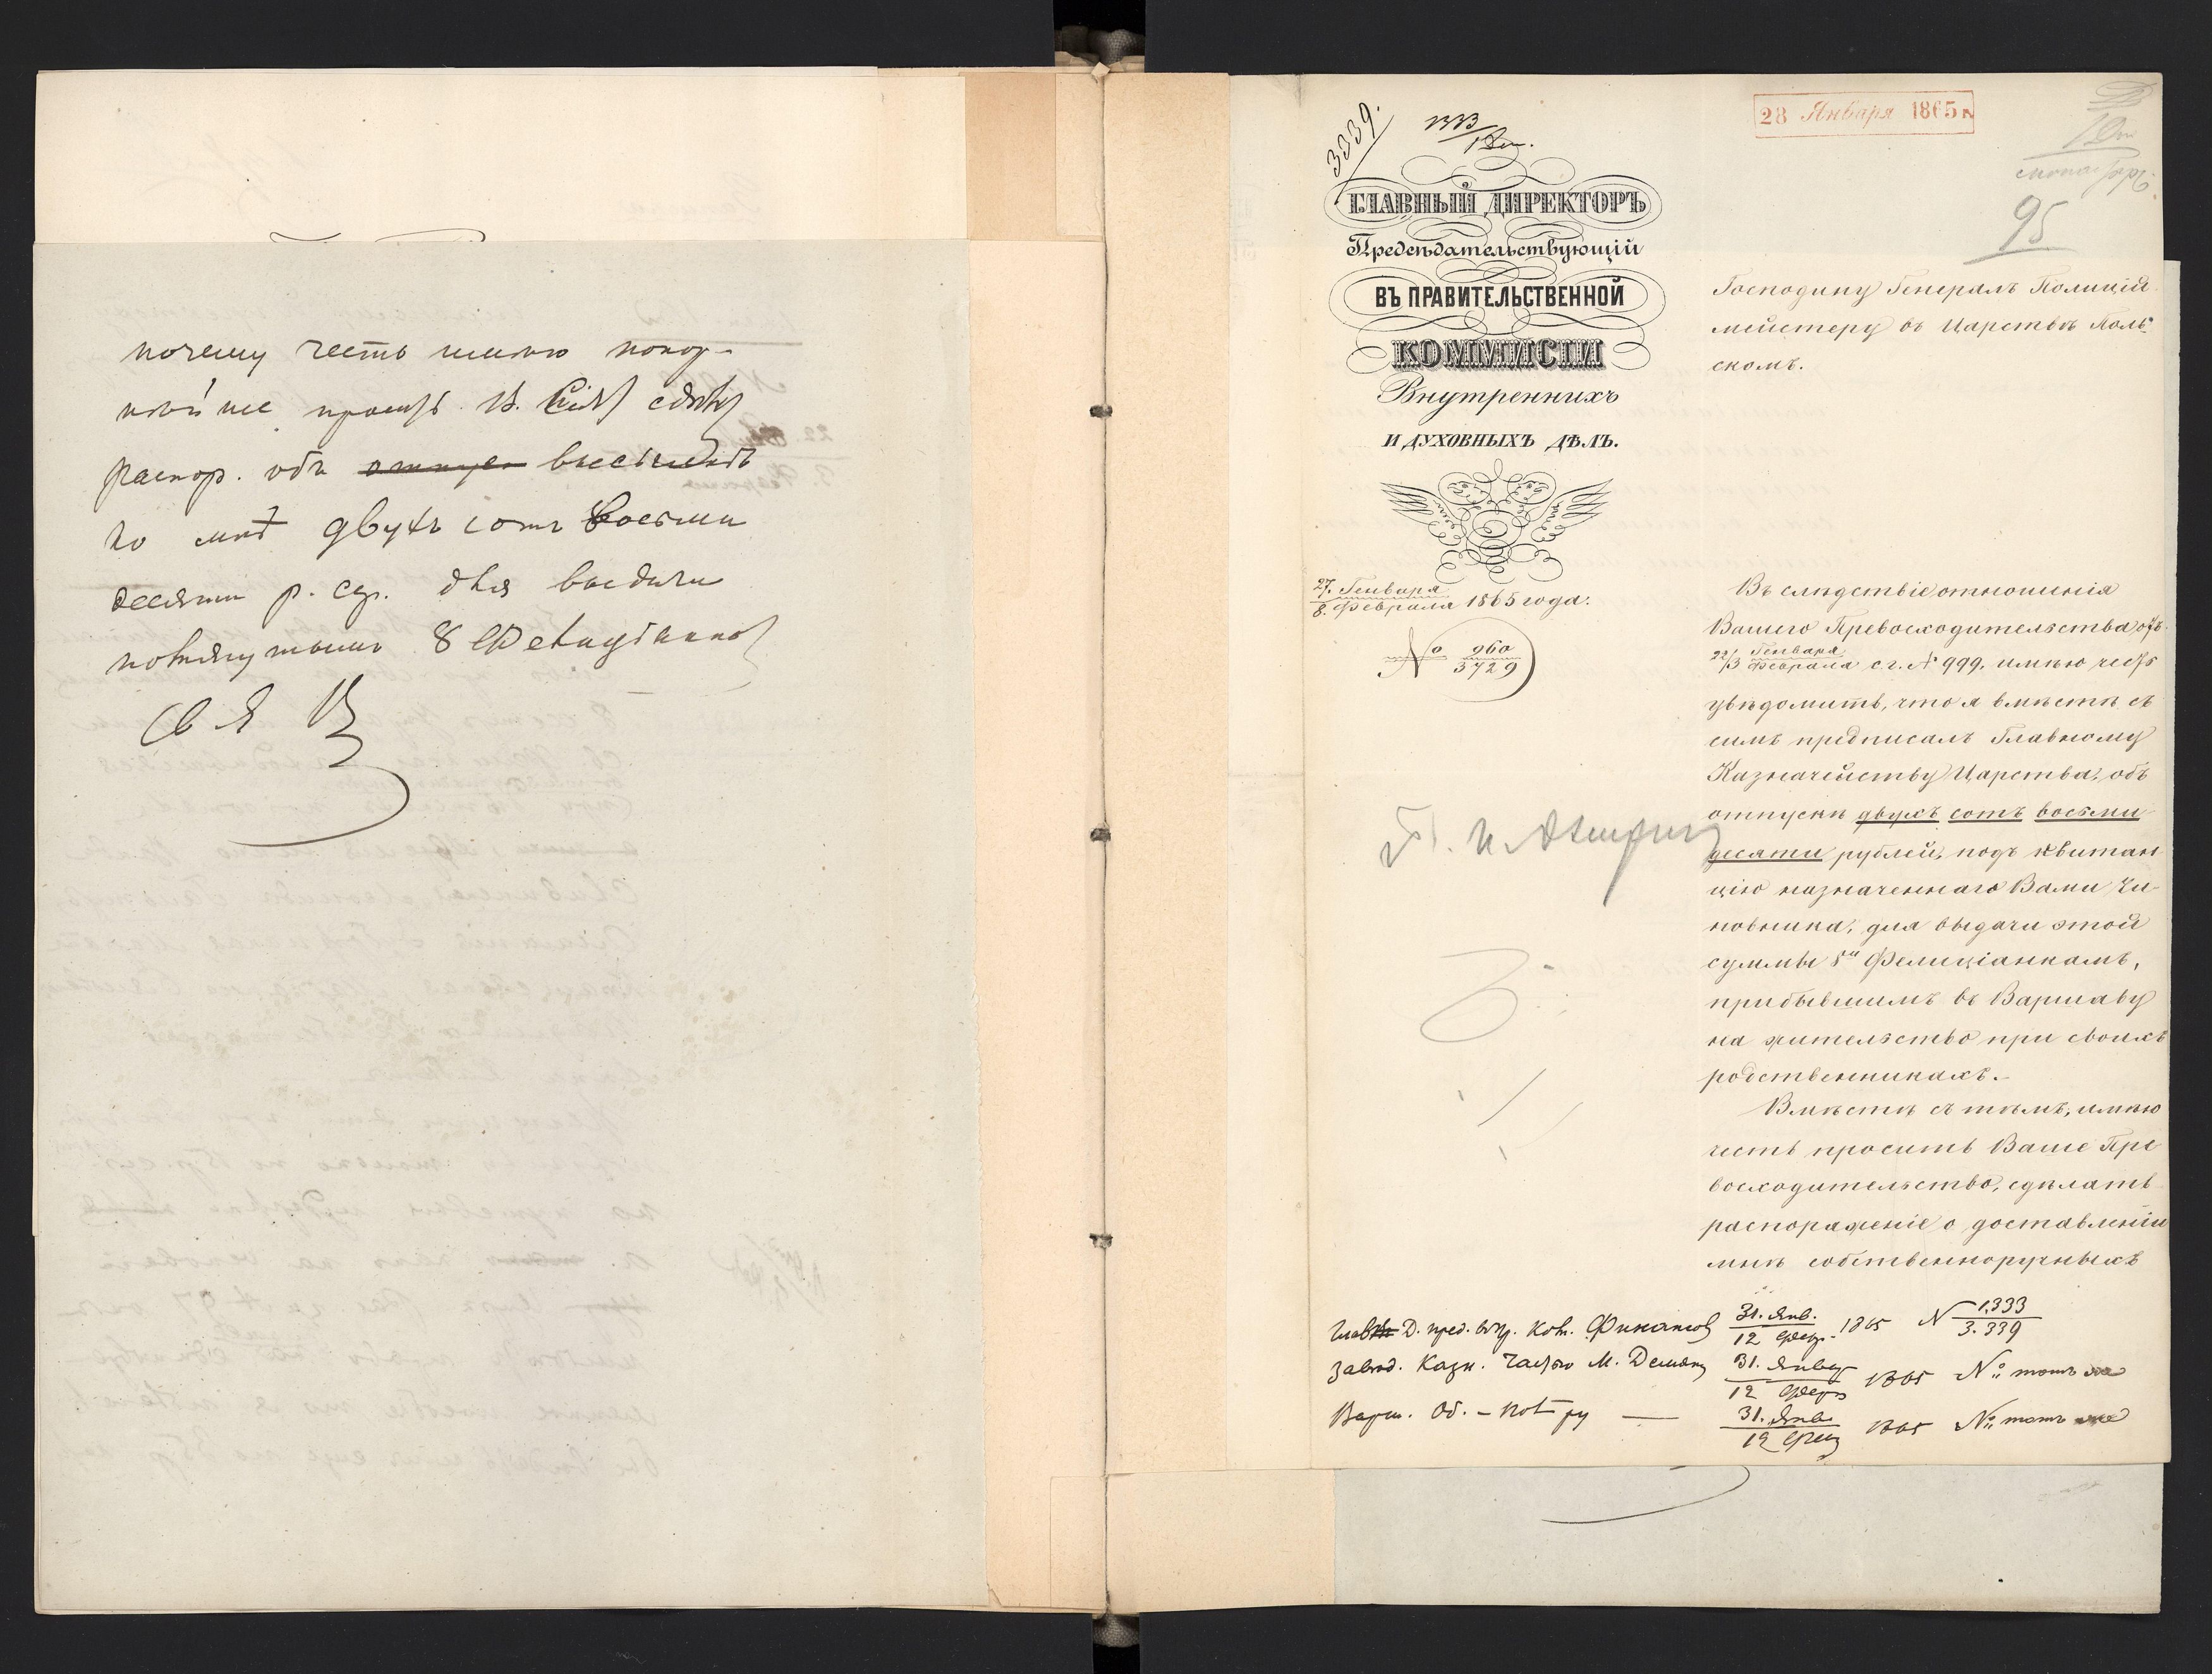 почему честь имѣю покор-
нѣйше просить В. Сiят сдѣл
распор. объ отпуск высылкѣ
ко мнѣ двухъ сотъ восьми
десяти р. сер. для выдачи
помянутымъ 8 Фелиціанкам
28 Января 1865 г.
3339.
1333
95
ГЛАВНЫЙ ДИРЕКТОРЪ
Предсѣдательствующій
ВЪ ПРАВИТЕЛЬСТВЕННОЙ
КОММИСІИ
Внутреннихъ
И ДУХОВНЫХЪ ДѢЛЪ.
27. Генваря
8. Февраля 1865 года.
№ 960
3729
Господину Генералъ Полицій-
мейстеру въ Царствѣ Поль-
скомъ.
Въ слѣдствіе отношенія
Вашего Превосходительства отъ
22/3 Генваря Февраля с. г. № 999, имѣю честь
увѣдомить, что я вмѣстѣ съ
симъ предписалъ Главному
Казначейству Царства, объ
отпускѣ двухъ сотъ восьми-
десяти рублей, подъ квитан-
цію назначеннаго Вами Чи-
новника, для выдачи этой
суммы 8ми Фелиціанкамъ,
прибывшимъ въ Варшаву
на жительство при своихъ
родственникахъ.
Вмѣстѣ съ тѣмъ, имѣю
честь просить Ваше Пре-
восходительство, сдѣлать
распоряженіе о доставленіи
мнѣ собственноручныхъ
Главн Д. пред. въ пр. Ком. Финансов 31. Янв. 12 Февр. 1865 № 1.333 3.339
Завѣд. Казн. Частью М. Демян 31. Янвр 12 Февр 1865 № тотъ же
Варш. Об. - Пол-ру — 31. Янв. 12 Февр 1865 № тотъ же